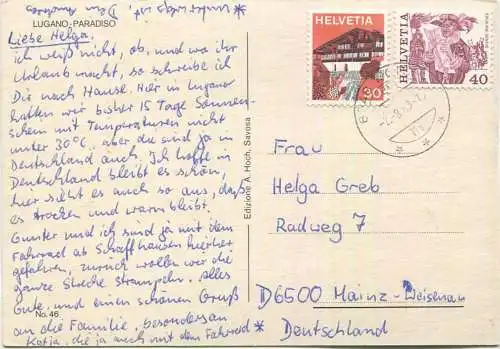 *unterwegs ist, Dein Andreas
LUGANO-PARADISO
Liebe Helga,
ich weiß nicht, ob und wo ihr
Urlaub macht, so schreibe ich
Dir nach Hause. Hier in Lugano
hatten wir bisher 15 Tage Sonnen-
schein mit Temperaturen nicht
unter 30°C, aber die sind ja in
Deutschland auch. Ich hoffe in
Deutschland bleibt es schön,
hier sieht es auch so aus, daß
es trocken und warm bleibt.
Gunter und ich sind ja mit dem
Fahrrad ab Schaffhausen hierher
gefahren, zurück wollen wir die
ganze Strecke strampeln. Alles
Gute und einen schönen Gruß
an die Familie, besonders an
Katja, die ja auch mit dem Fahrrad *
No. 46
Edizione A. Hoch, Savosa
HELVETIA
30
HELVETIA
40
Frau
Helga Greb
Radweg 7
D6500 Mainz-Weisenau
Deutschland